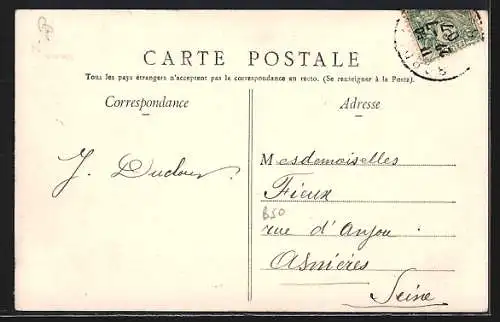 CARTE POSTALE
Tous les pays étrangers n'acceptent pas la correspondance au recto. (Se renseigner à la Poste).
Correspondance
Adresse
J.
Mesdemoiselles
Fieux
B50
rue d'Anjou
Asnières
Seine